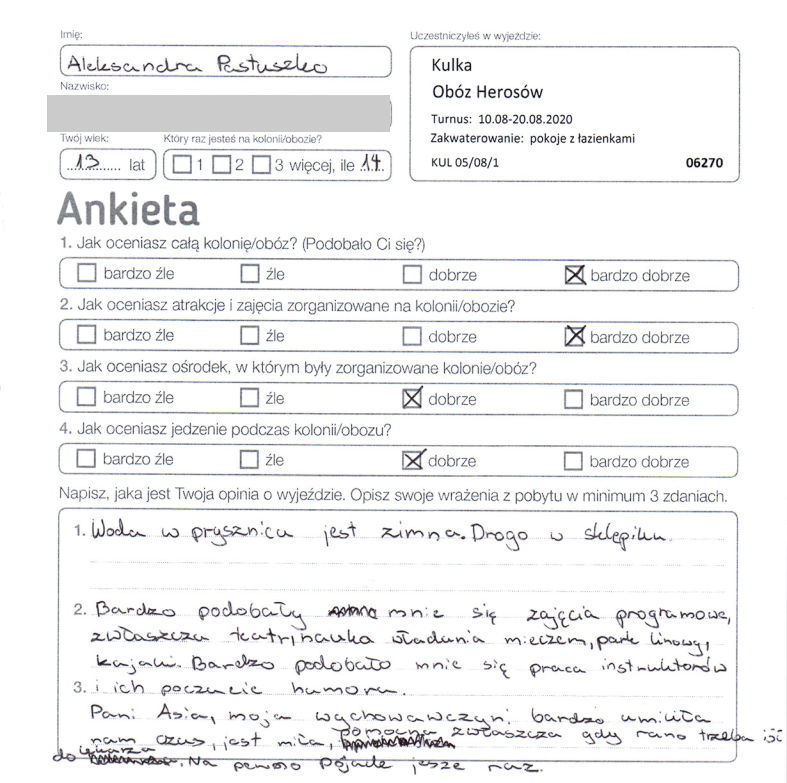 Imię:
Aleksandra Pastuszko
Nazwisko:
Twój wiek:
13 lat
Który raz jesteś na kolonii/obozie?
1 2 3 więcej, ile 14.
Uczestniczyłeś w wyjeździe:
Kulka
Obóz Herosów
Turnus: 10.08-20.08.2020
Zakwaterowanie: pokoje z łazienkami
KUL 05/08/1 06270
Ankieta
1. Jak oceniasz całą kolonię/obóz? (Podobało Ci się?)
bardzo źle źle dobrze bardzo dobrze
2. Jak oceniasz atrakcje i zajęcia zorganizowane na kolonii/obozie?
bardzo źle źle dobrze bardzo dobrze
3. Jak oceniasz ośrodek, w którym były zorganizowane kolonie/obóz?
bardzo źle źle dobrze bardzo dobrze
4. Jak oceniasz jedzenie podczas kolonii/obozu?
bardzo źle źle dobrze bardzo dobrze
Napisz, jaka jest Twoja opinia o wyjeździe. Opisz swoje wrażenia z pobytu w minimum 3 zdaniach.
1. Woda w prysznicu jest zimna. Drogo w sklepiku.
2. Bardzo podobały mnie się zajęcia programowe,
zwłaszcza teatr, nauka władania mieczem, park linowy,
kajaki. Bardzo podobało mnie się praca instruktorów
3. i ich poczucie humoru.
Pani Asia, moja wychowawczyni bardzo umiliła
nam czas, jest miła, pomocna zwłaszcza gdy rano trzeba iść
do lekarza. Na pewno pojadę jesze raz.